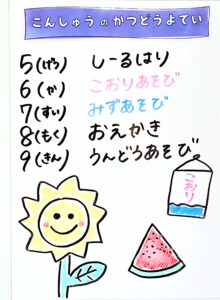 こんしゅうのかつどうよてい
5(げつ) しーるはり
6(か) こおりあそび
7(すい) みずあそび
8(もく) おえかき
9(きん) うんどうあそび
こおり